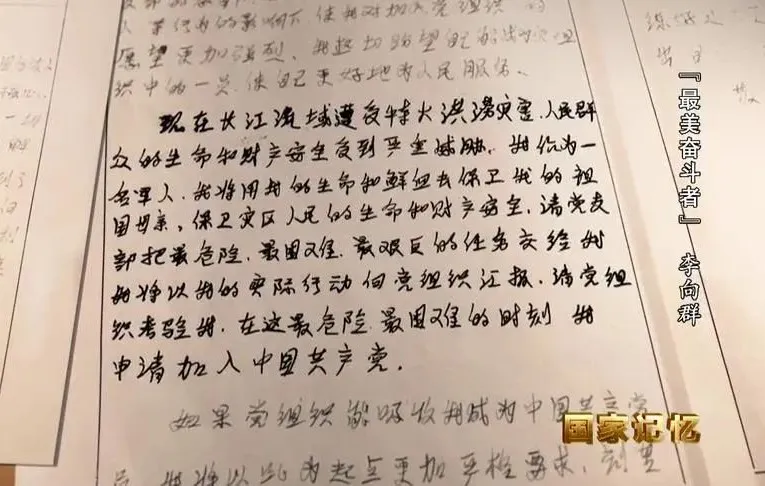 愿望更加强烈。我迫切盼望能够成为党组
织中的一员,使自己更好地为人民服务。
现在长江流域遭受特大洪涝灾害,人民群
众的生命和财产安全受到严重威胁。我作为一
名军人,我将用我的生命和鲜血去保卫我的祖
国母亲,保卫灾区人民的生命和财产安全,请党支
部把最危险、最困难、最艰巨的任务交给我
我将以我的实际行动向党组织汇报,请党组
织考验我,在这最危险、最困难的时刻 我
申请加入中国共产党。
如果党组织能吸收我成为中国共产党
员 我将以此为起点更加严格要求,刻苦
『最美奋斗者』 李向群
国家记忆